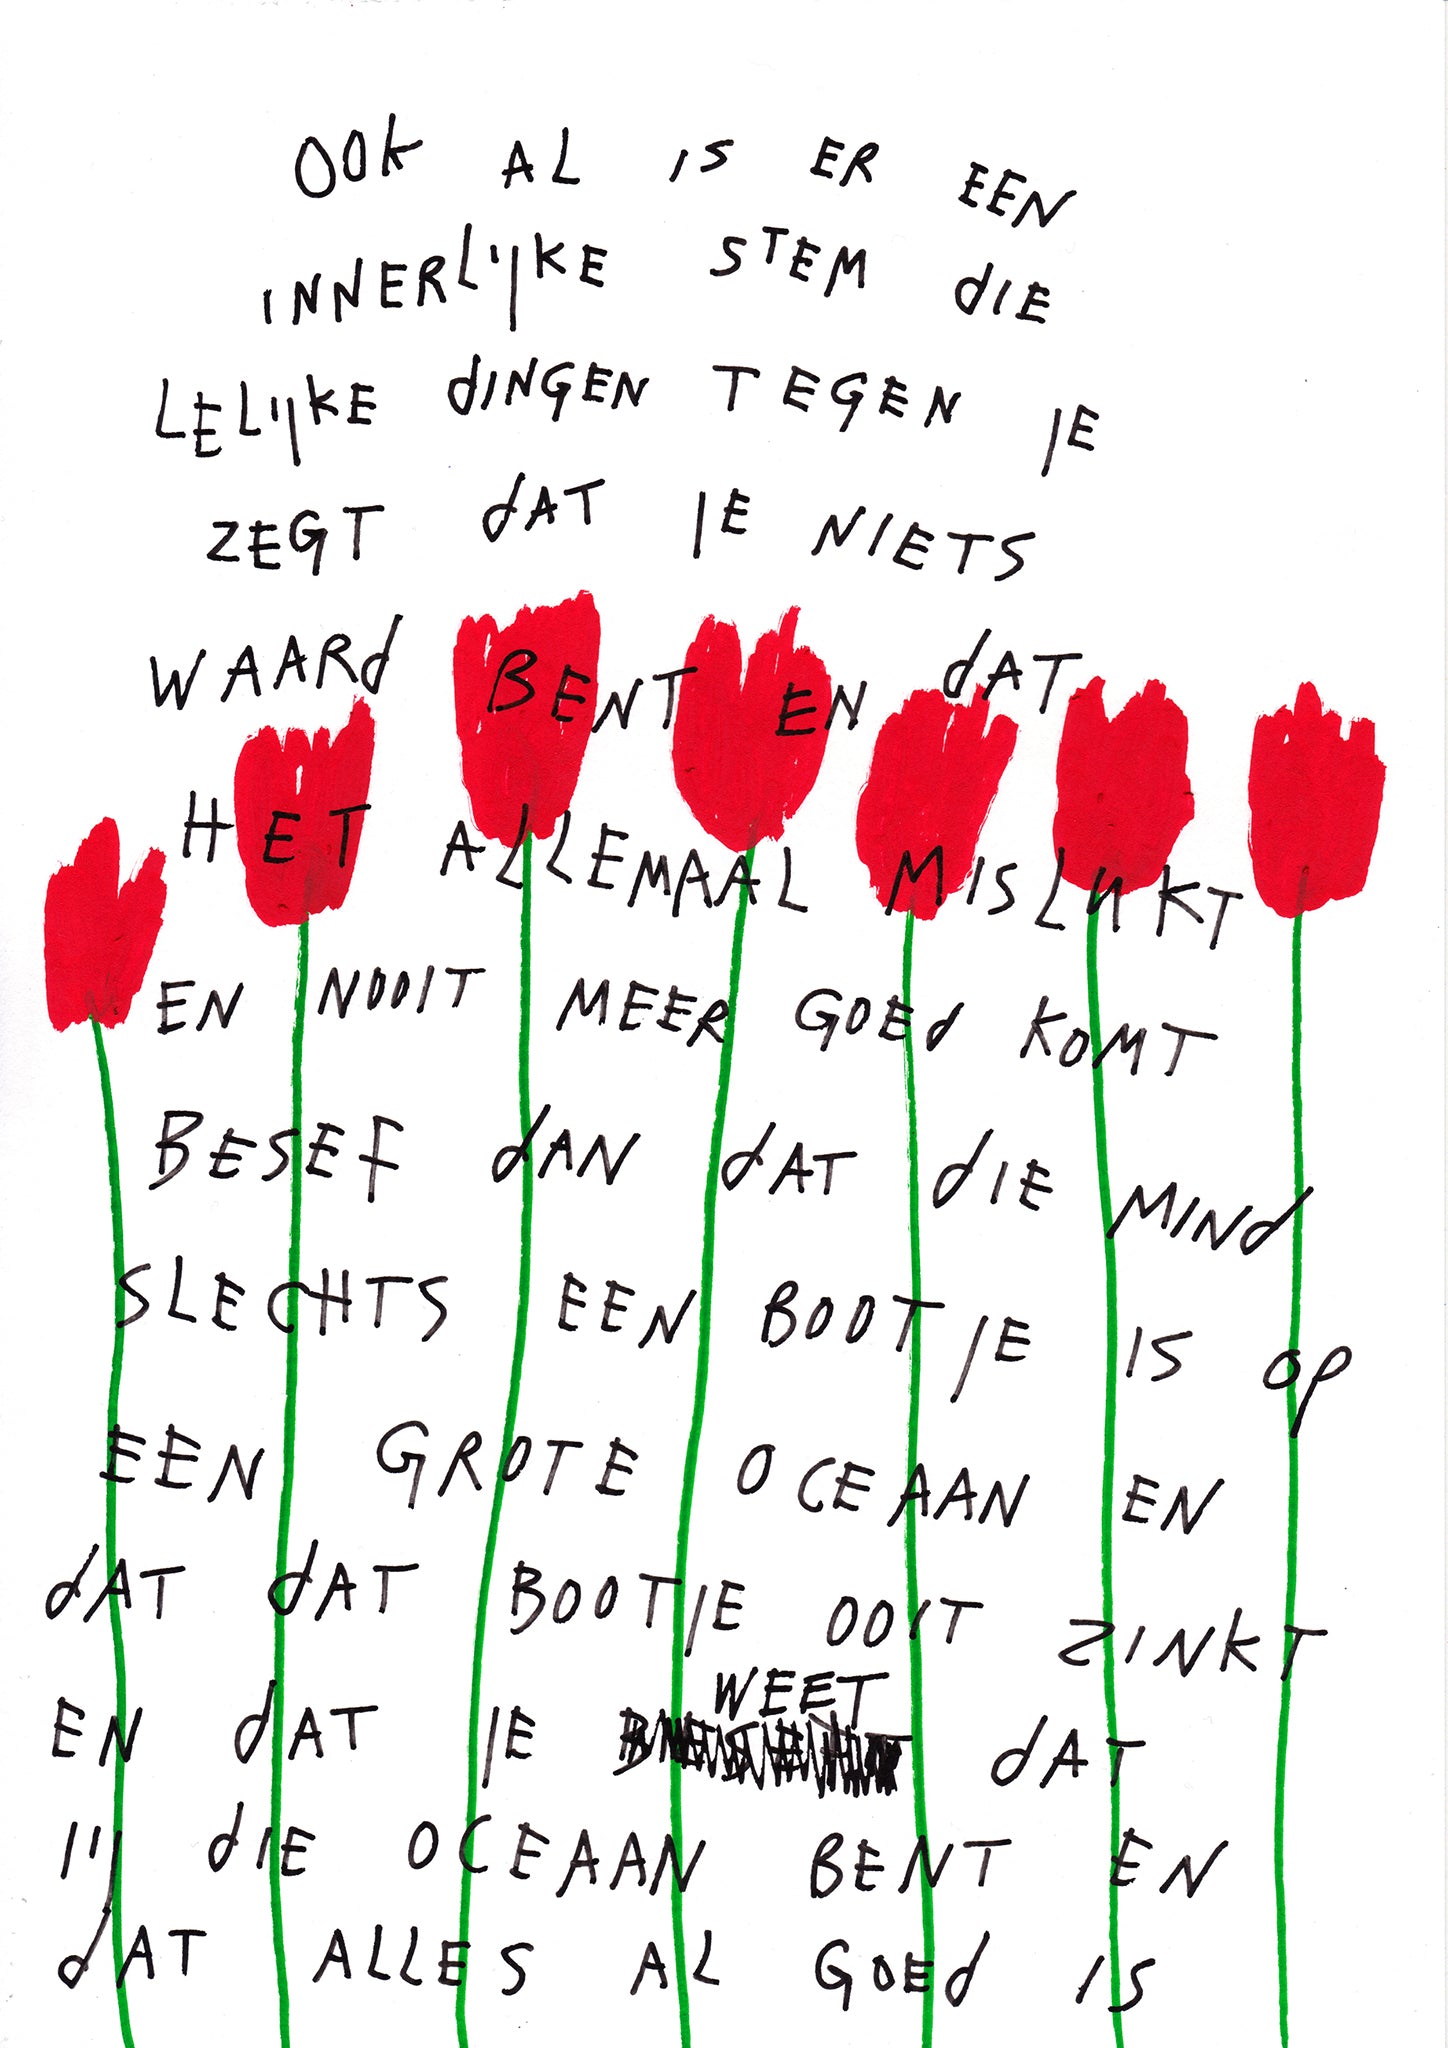 OOK AL IS ER EEN
INNERLIJKE STEM DIE
LELIJKE DINGEN TEGEN JE
ZEGT DAT JE NIETS
WAARD BENT EN DAT
HET ALLEMAAL MISLUKT
EN NOOIT MEER GOED KOMT
BESEF DAN DAT DIE MIND
SLECHTS EEN BOOTJE IS OP
EEN GROTE OCEAAN EN
DAT DAT BOOTJE OOIT ZINKT
EN DAT JE WEET DAT
JIJ DIE OCEAAN BENT EN
DAT ALLES AL GOED IS